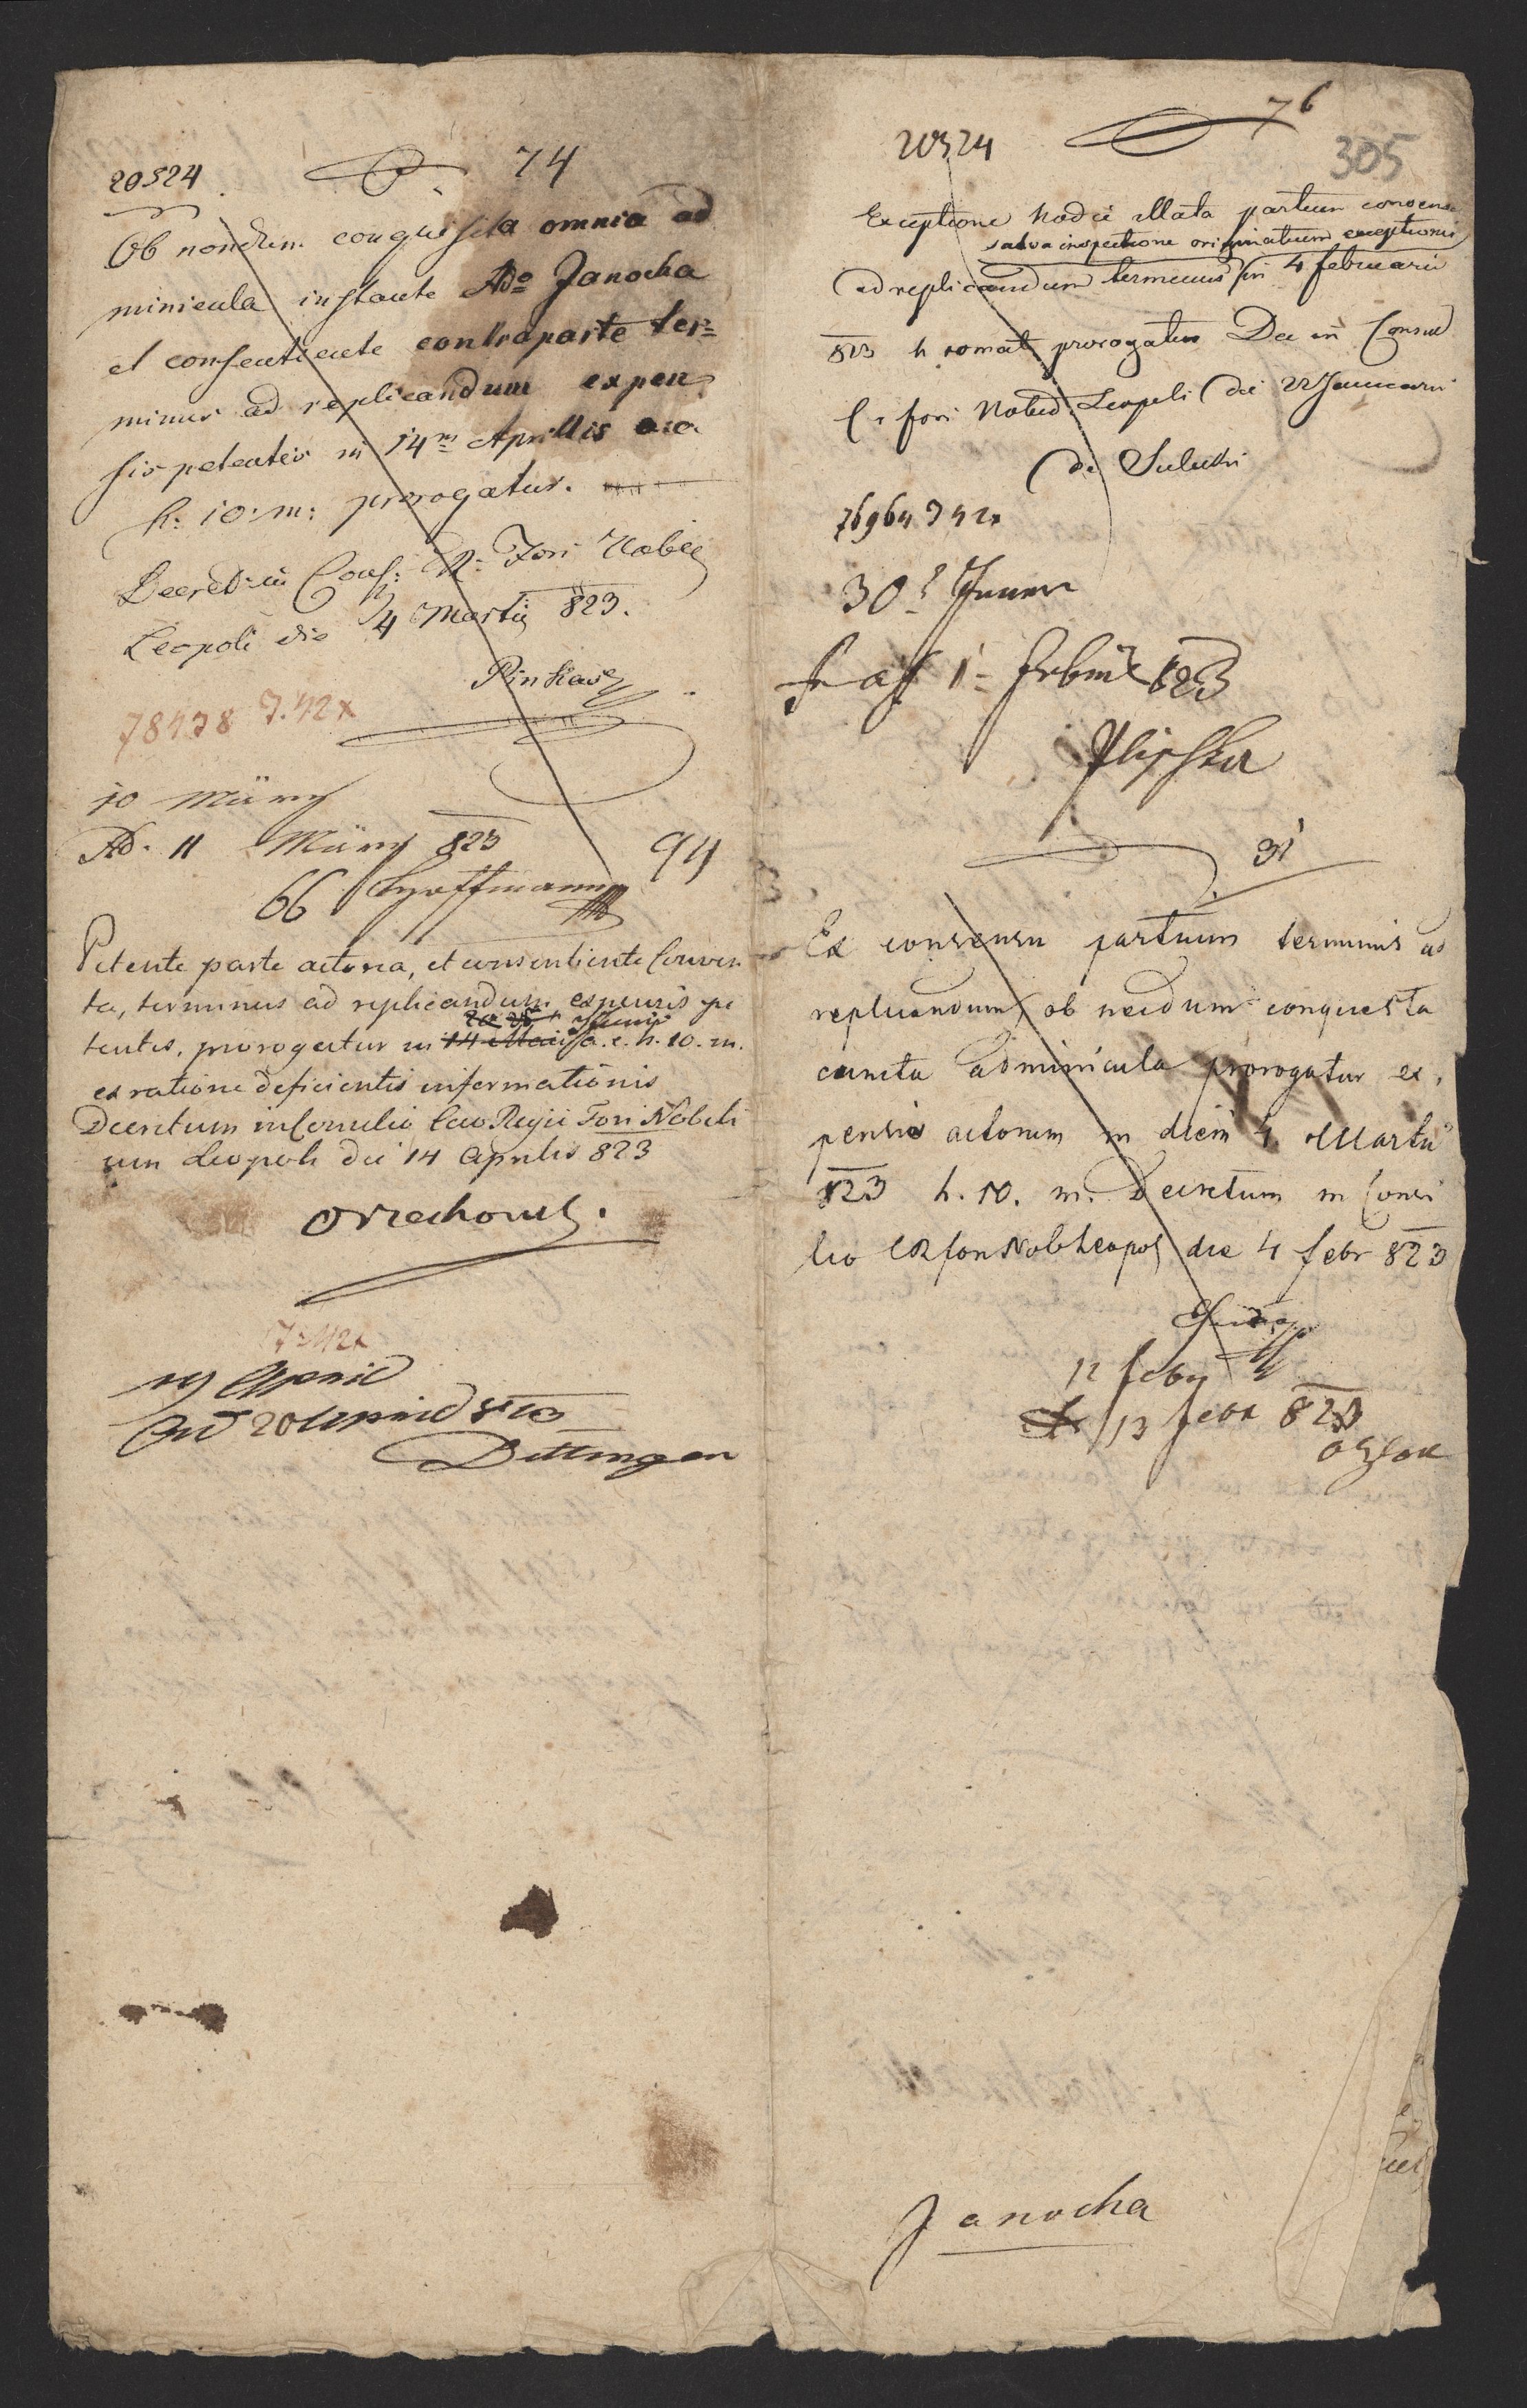 20524 74
Ob nondum conquisita omnia ad
minicula instante Ado Janocha
et consentiente contraparte ter=
minus ad replicandum expen
sis petentis in 14m Aprillis a.c.
h: 10: m: prorogatur.
Decret: in Cons: R: Fori Nobil
Leopoli die 4 Martii 823.
Pinkas
78478 7.42x
10 März
Ad. 11 März 823
94
66 Hoffmann
Petente parte actorea, et consentiente Conven
ta, terminus ad replicandum expensis pe
Junii
tentis, prorogatur in 14 Maii a. c. h. 10. m.
ex ratione deficientis informationis
Decretum in Consilio Caeo Regii Fori Nobili
um Leopoli die 14 Aprilis 823
Orzechows
7=42x
19 April
Ad 20 April 823
Dittingen
76
20524
305
Exceptione hodie illata partium consensu
salva inspectione originalium exceptionis
ad replicandum terminus in 4 februarii
823 h 10 mat prorogatur Dec in Consil
fori Nobil Leopoli die 22 Januarii
76964 7 42x
30 Janner
1= Febru 823
31
Ex consensu partium terminus ad
replicandum ob necdum conquesta
cuncta adminicula prorogatur ex,
pensis actorum in diem 4 Martii
823 h. 10. m. Decretum in Consi
lio CR fori Nob Leopol die 4 febr 823
12 feby
13 febr 823
Janocha